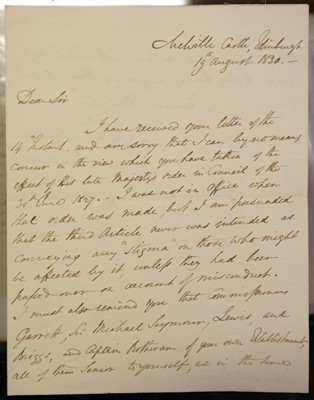 Melville Castle, Edinburgh
19th August 1830.—
Dear Sir
I have received your letter of the
14 Instant, and am sorry that I can by no means
concur in the view which you have taken of the
effect of his late Majesty's order in Council of the
30th June 1827.— I was not in office when
that order was made, but I am persuaded
that the third Article never was intended as
conveying any "stigma" on those who might
be affected by it, unless they had been
passed over on account of misconduct.
I must also remind you that Commissioners
Garrett, Sir Michael Seymour, Lewis, and
Briggs, and Captain Rotheram of your own Establishment,
all of them Senior to yourself, are in the same